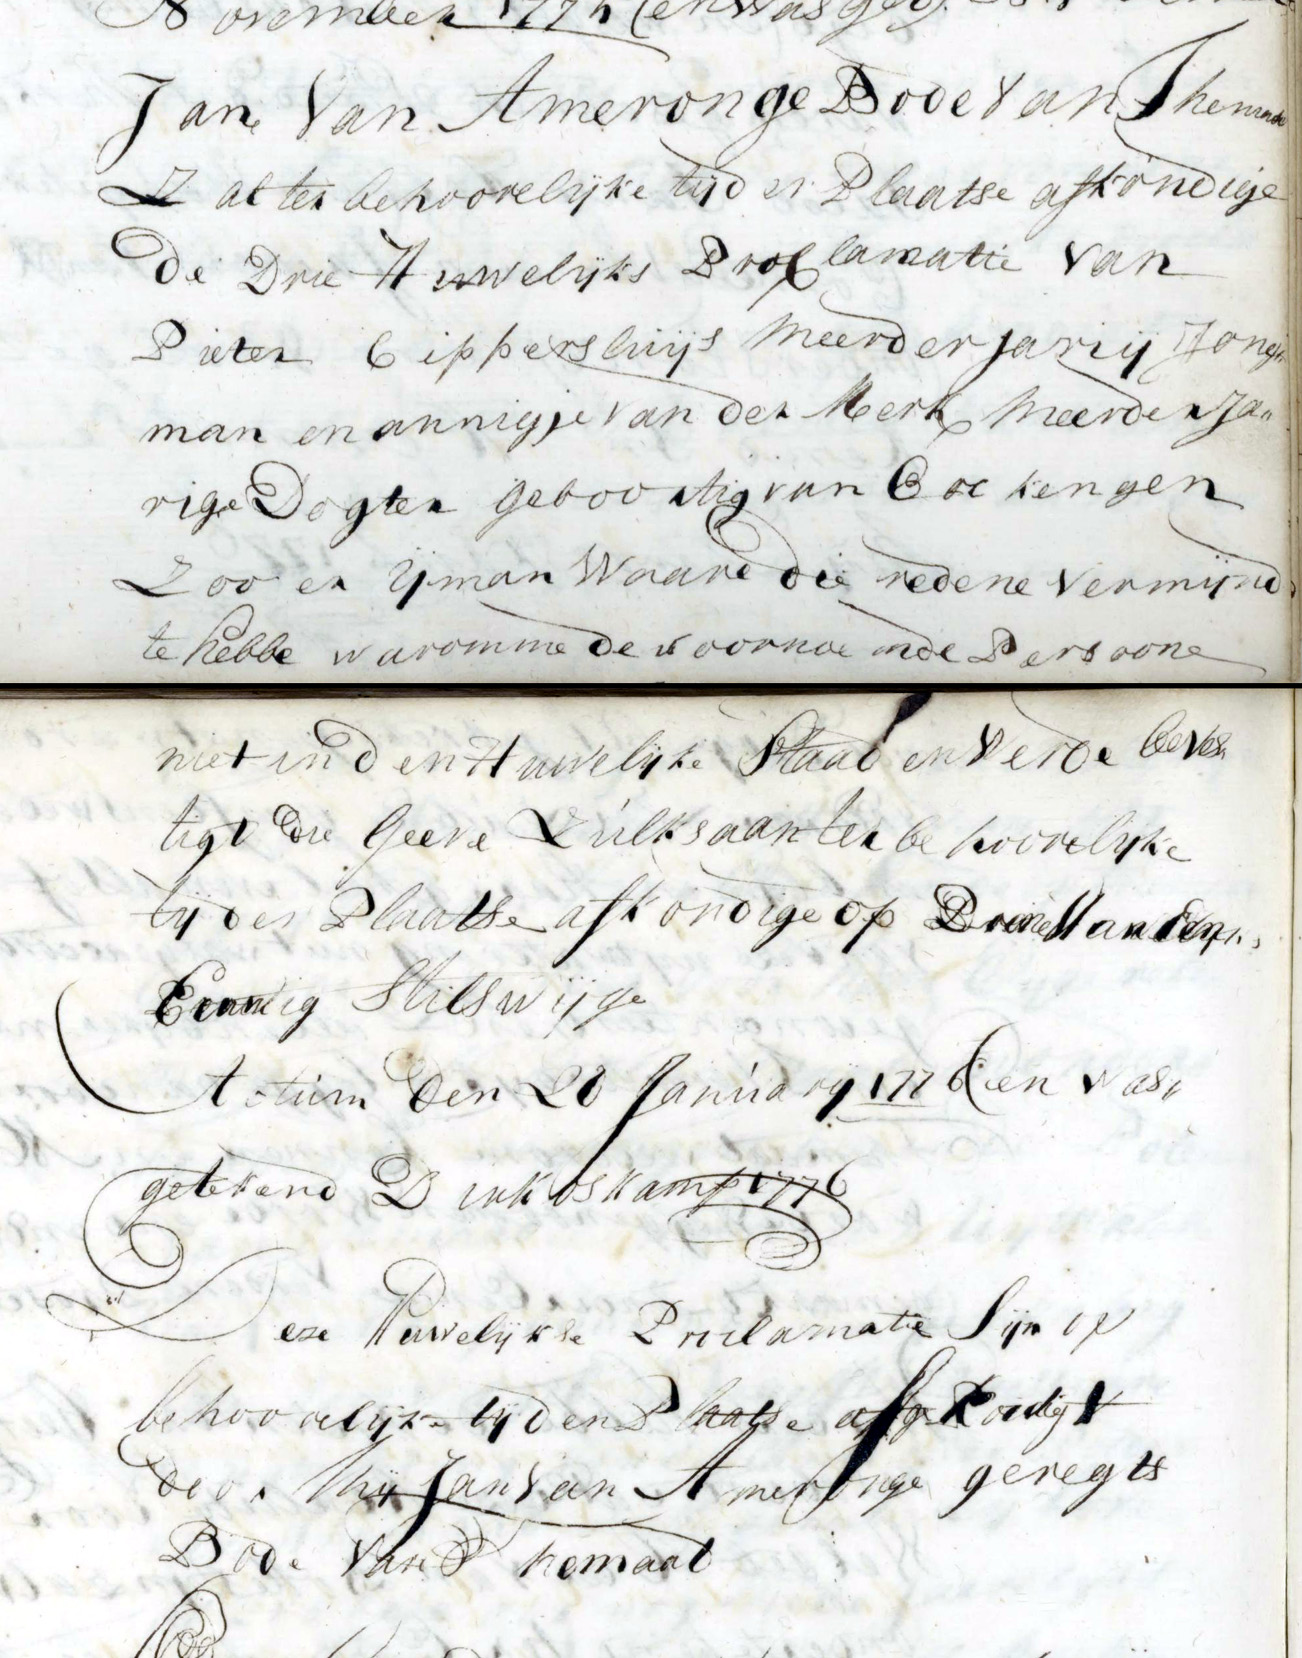 November 177
Jan Van Ameronge Bode Van Themaa
Zal ter behoorelijke tijd en Plaatse afkondige
de Drie Huwelijks Proclamatie Van
Pieter Cippersluijs Meerderjarig Jong
man en annigje van der Merk Meerder Ja"
rige Dogter geboortig van Cockengen
Zoo er ijman Waare die redene Vermijnd
te hebbe waromme de voornoemde Persoone
niet in den Huwelijke Staad en Verde beves
tigt die geeve Zulks aan ter behoorelijke
tijd en Plaatse afkondige op
Eeuwig Stilswijge
Actum Den 20 January 1776 (en was
getekend D inkboskamp 1776
Deze Huwelijkse Proclamatie Sijn op
behoorelijke tijd en Plaatse afgekondigt
door Mij Jan Van Ameronge geregts
Bode Van Themaat